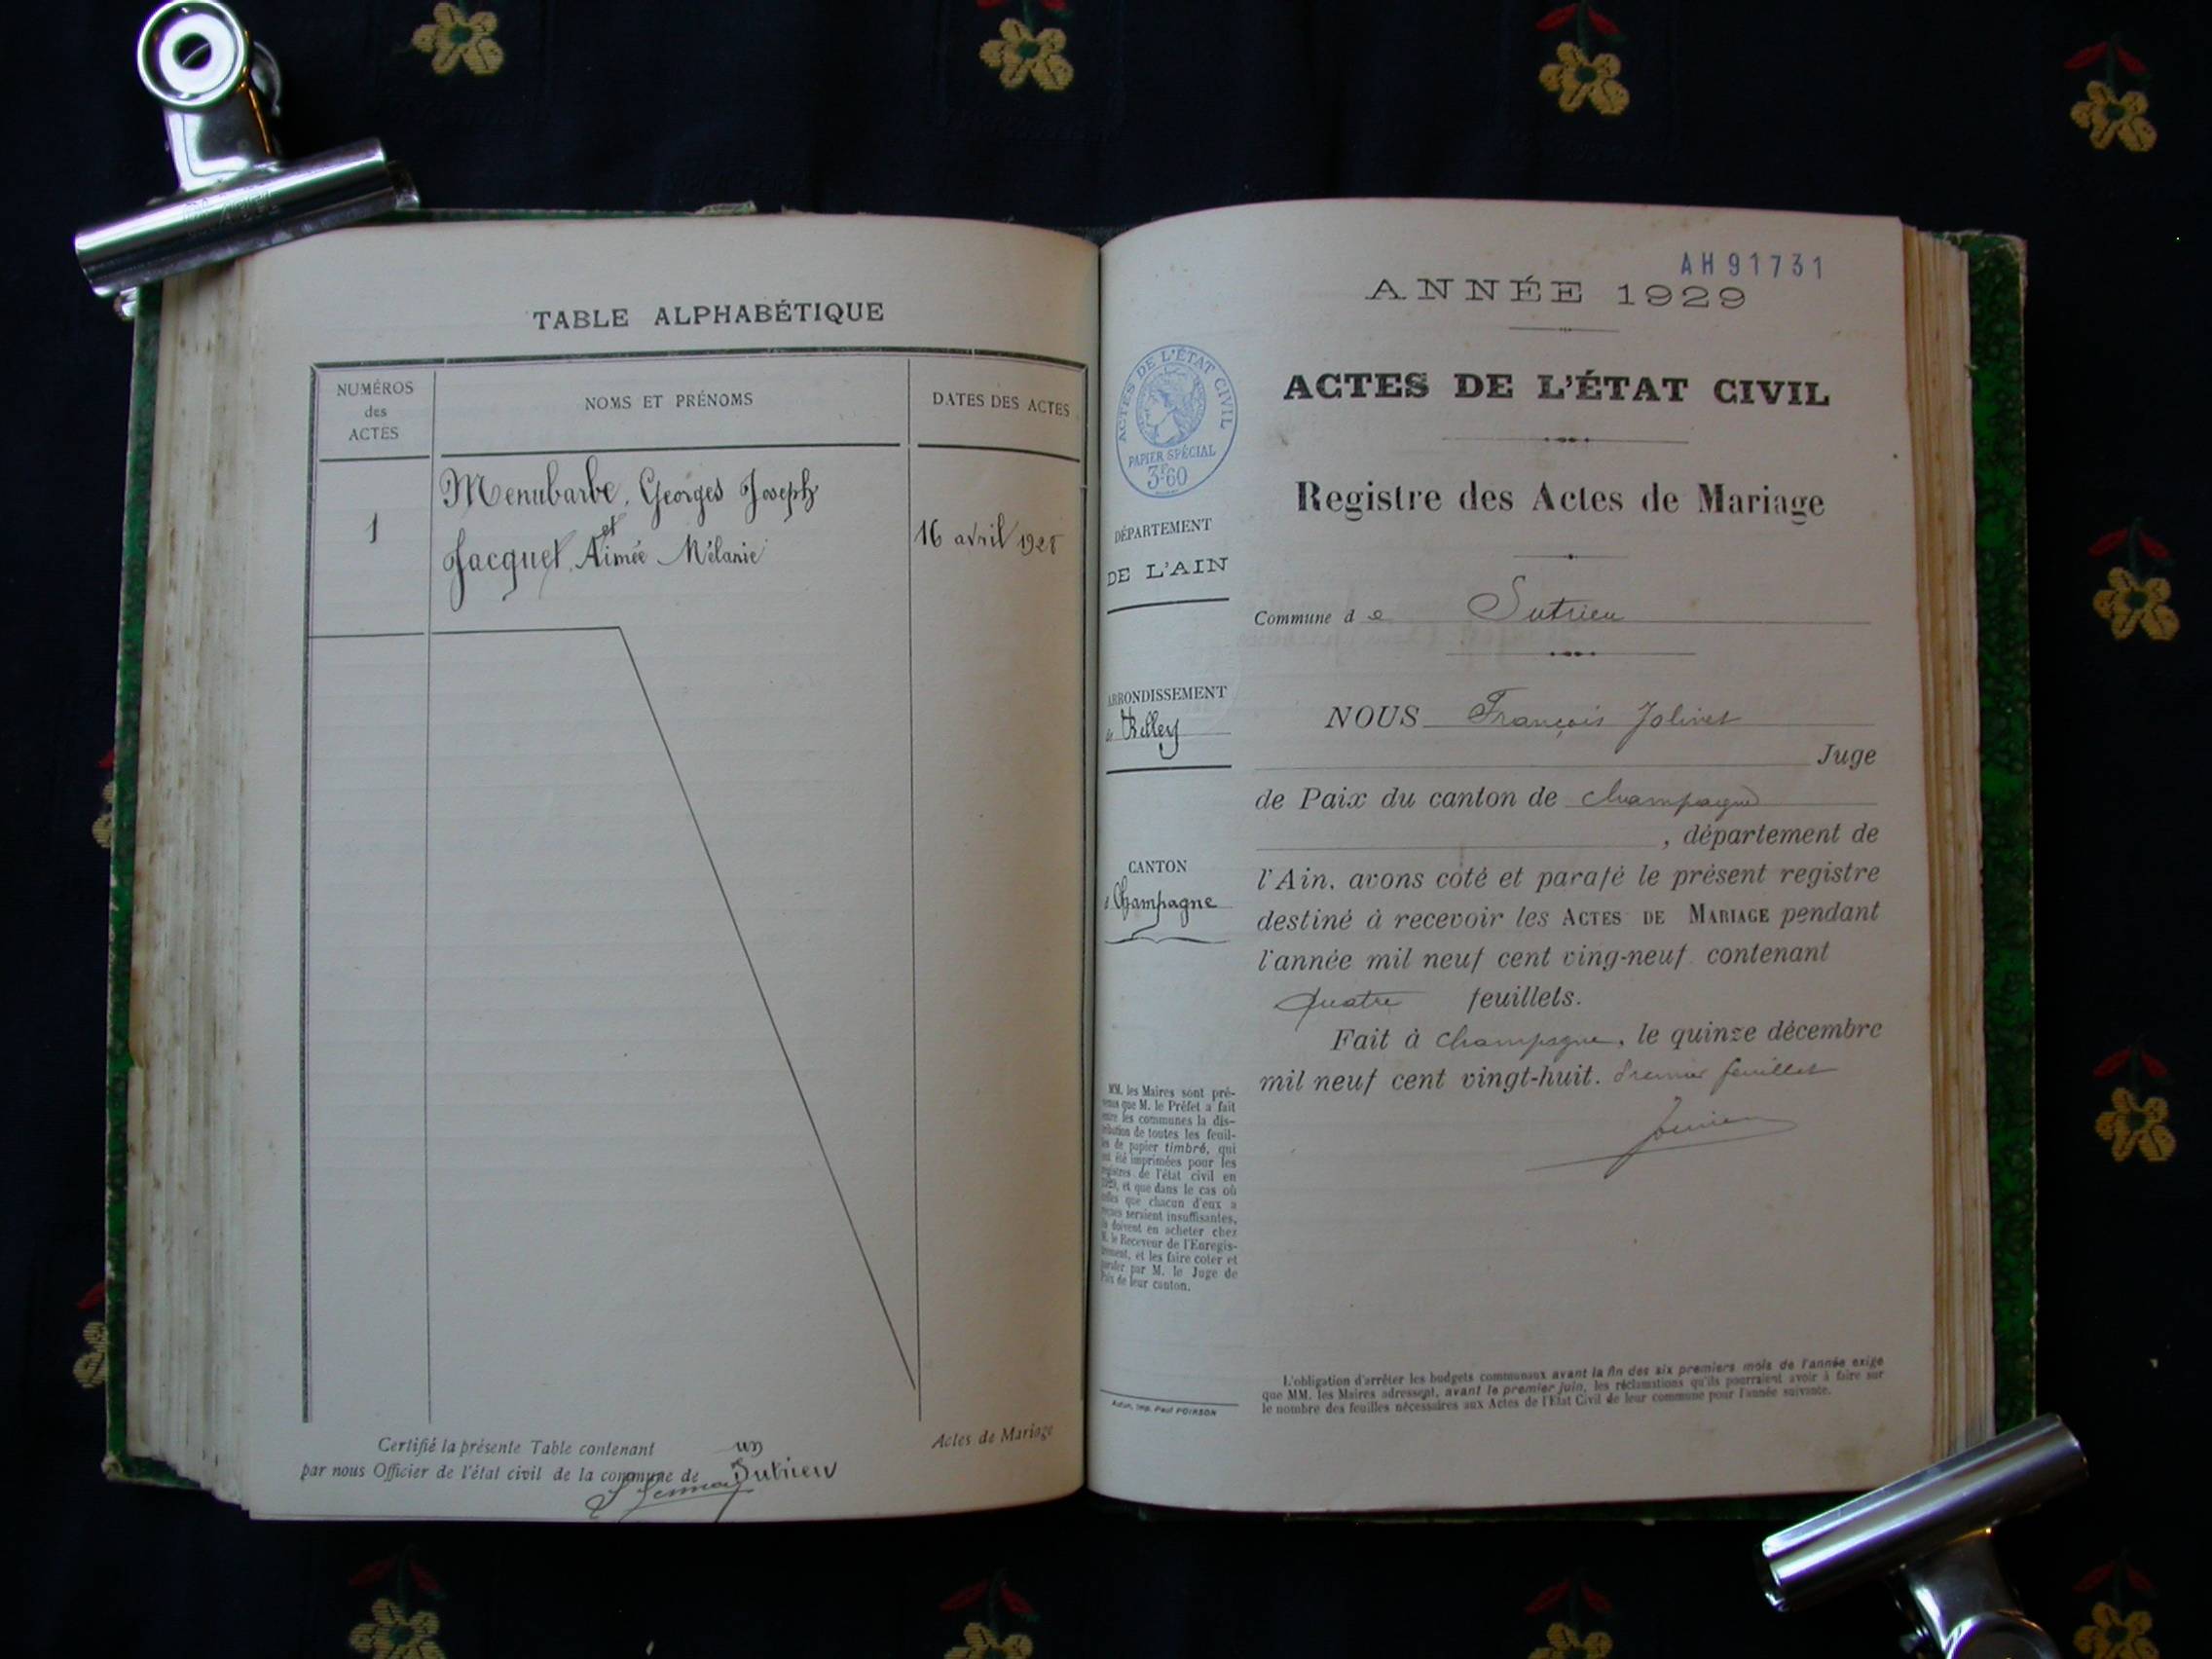 TABLE ALPHABÉTIQUE
NUMÉROS
des
ACTES
NOMS ET PRÉNOMS
DATES DES ACTES
1
Menubarbe, Georges Joseph
et
Jacquet, Aimée Mélanie
16 avril 1928
Certifié la présente Table contenant un
par nous Officier de l'état civil de la commune de Sutrieu
Actes de Mariage
AH91731
ANNÉE 1929
ACTES DE L'ÉTAT CIVIL
Registre des Actes de Mariage
ACTES DE L'ÉTAT CIVIL
PAPIER SPÉCIAL
3F60
DÉPARTEMENT
DE L'AIN
ARRONDISSEMENT
de Belley
CANTON
Champagne
MM. les Maires sont pré-
venus que M. le Préfet a fait
entre les communes la dis-
tribution de toutes les feuil-
les de papier timbré, qui
ont été imprimées pour les
registres de l'état civil en
1929, et que dans le cas où
celles que chacun d'eux a
reçues seraient insuffisantes,
ils doivent en acheter chez
M. le Receveur de l'Enregis-
trement, et les faire coter et
parafer par M. le Juge de
Paix de leur canton.
Imp. Paul POIRSON
Commune de Sutrieu
NOUS François Jolivet
Juge
de Paix du canton de Champagne
, département de
l'Ain, avons coté et parafé le présent registre
destiné à recevoir les ACTES DE MARIAGE pendant
l'année mil neuf cent ving-neuf contenant
quatre feuillets.
Fait à Champagne, le quinze décembre
mil neuf cent vingt-huit. Premier feuillet
L'obligation d'arrêter les budgets communaux avant la fin des six premiers mois de l'année exige
que MM. les Maires adressent, avant le premier juin, les réclamations qu'ils pourraient avoir à faire sur
le nombre des feuilles nécessaires aux Actes de l'État Civil de leur commune pour l'année suivante.